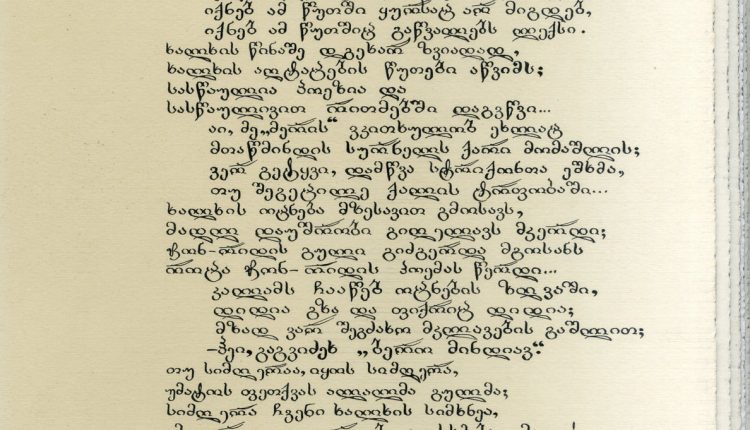 იქნებ ამ წუთში ყურსაც არ მიგდებ,
იქნებ ამ წუთშიც გაწვალებს ლექსი.
ხალხის წინაშე დგეხარ ზვიადად,
ხალხის აღტაცების წუთები აწვიმს;
სასწაულია პოეზია და
სასწაულივით რითმებში დაგვწვი...
აი, მე „მერის“ ვკითხულობ ეხლაც
მთაწმინდის სურნელს ქარი მომაშლის;
ვერ გეტყვი, დამწვა სტრიქონთა ეშხმა,
თუ შეგეცილე ქალის ტრფობაში...
ხალხის ოცნება მზესავით გმოსავს,
მადლი დაუშრობი გიღელავს მკერდი;
ჩონ-რიდის გული გიმგერდა მგოსანს
როცა ჩონ-რიდის პოემას წერდი...
კალამს ჩააწებ ოცნების ზღვაში,
დიდია გზა და ფიქრიც დიდია;
მზად ვარ შეგძახო მკლავების გაშლით;
-ჰეი, გაგვიძეხ „ბერო მინდიავ“.
თუ სიმღერაა, იყოს სიმღერა,
უმატოს ფეთქვას ალალმა გულმა;
სიმღერა ჩვენი ხალხის სიმხნეა,